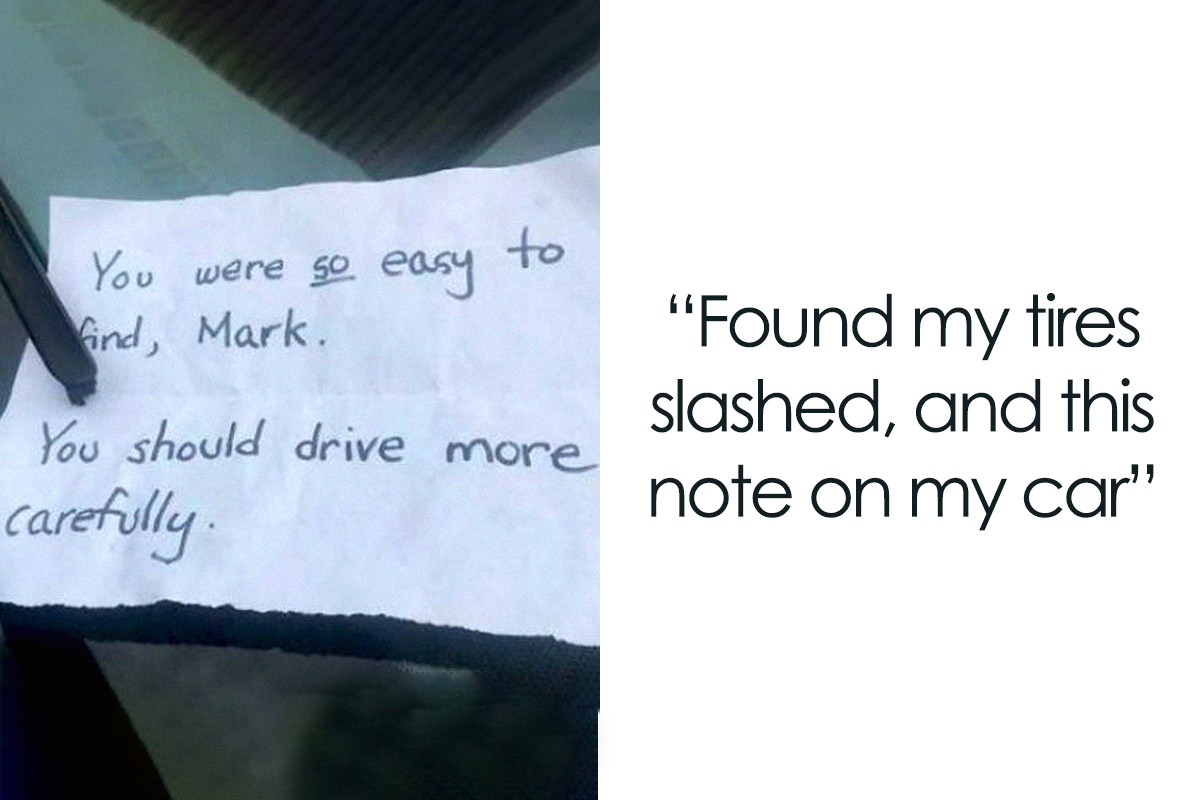 You were so easy to
find, Mark.
You should drive more
carefully.
“Found my tires
slashed, and this
note on my car”